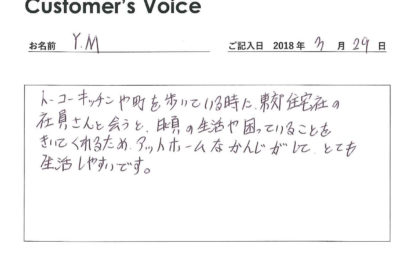 Customer's Voice
お名前 Y.M ご記入日 2018 年 3 月 29 日
トーコーキッチンや町を歩いている時に、東郊住宅社の
社員さんと会うと、日頃の生活や困っていることを
きいてくれるため、アットホームなかんじがして、とても
生活しやすいです。